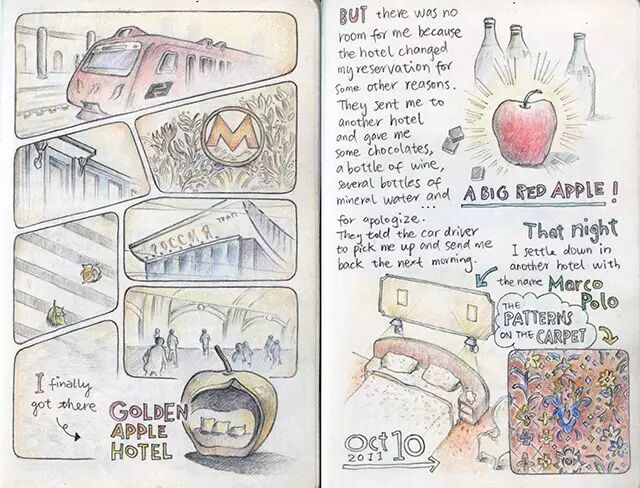 M
РОССИЯ
ТЕАТР
I finally
got there
GOLDEN
APPLE
HOTEL
BUT there was no
room for me because
the hotel changed
my reservation for
some other reasons.
They sent me to
another hotel
and gave me
some chocolates,
a bottle of wine,
several bottles of
mineral water and
...
for apologize.
They told the car driver
to pick me up and send me
back the next morning.
A BIG RED APPLE!
That night
I settle down in
another hotel with
the name Marco
Polo
THE
PATTERNS
ON THE
CARPET
Oct 10
2011